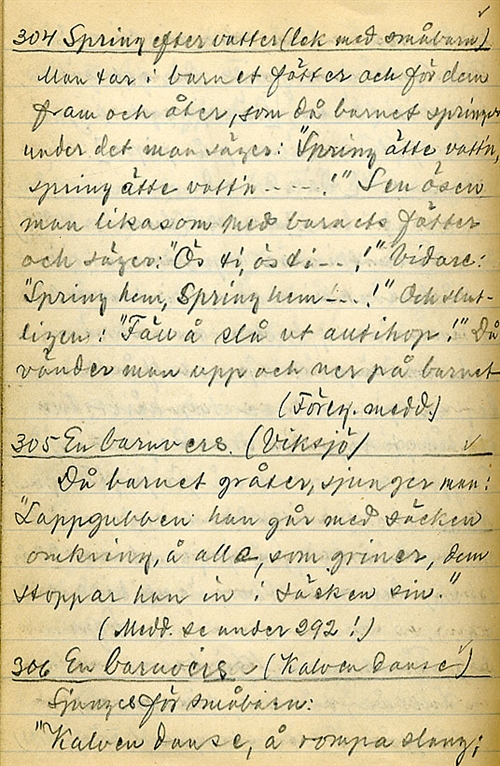 304 Spring efter vatter (lek med småbarn)
Man tar i barnet fötter och för dem
fram och åter, som då barnet springer
under det man säger: "Spring ätte vatt'n,
spring ätte vatt'n - - - -!" Sen ösen
man likasom med barnets fötter
och säger: "Ös ti, ös ti - - -!" Vidare:
"Spring hem, Spring hem - - -!" Och slut-
ligen: "Fäll å slå ut alltihop!" Då
vänder man upp och ner på barnet
(Föreg. medd.)
305 En barnvers. (Viksjö)
Då barnet gråter, sjunger man:
"Lappgubben han går med säcken
omkring, å alla, som griner, dem
stoppar han in i säcken sin."
(Medd. se under 292!)
306 En barnvers (Kalven danse)
Sjunges för småbarn:
"Kalven danse, å rompa slang;